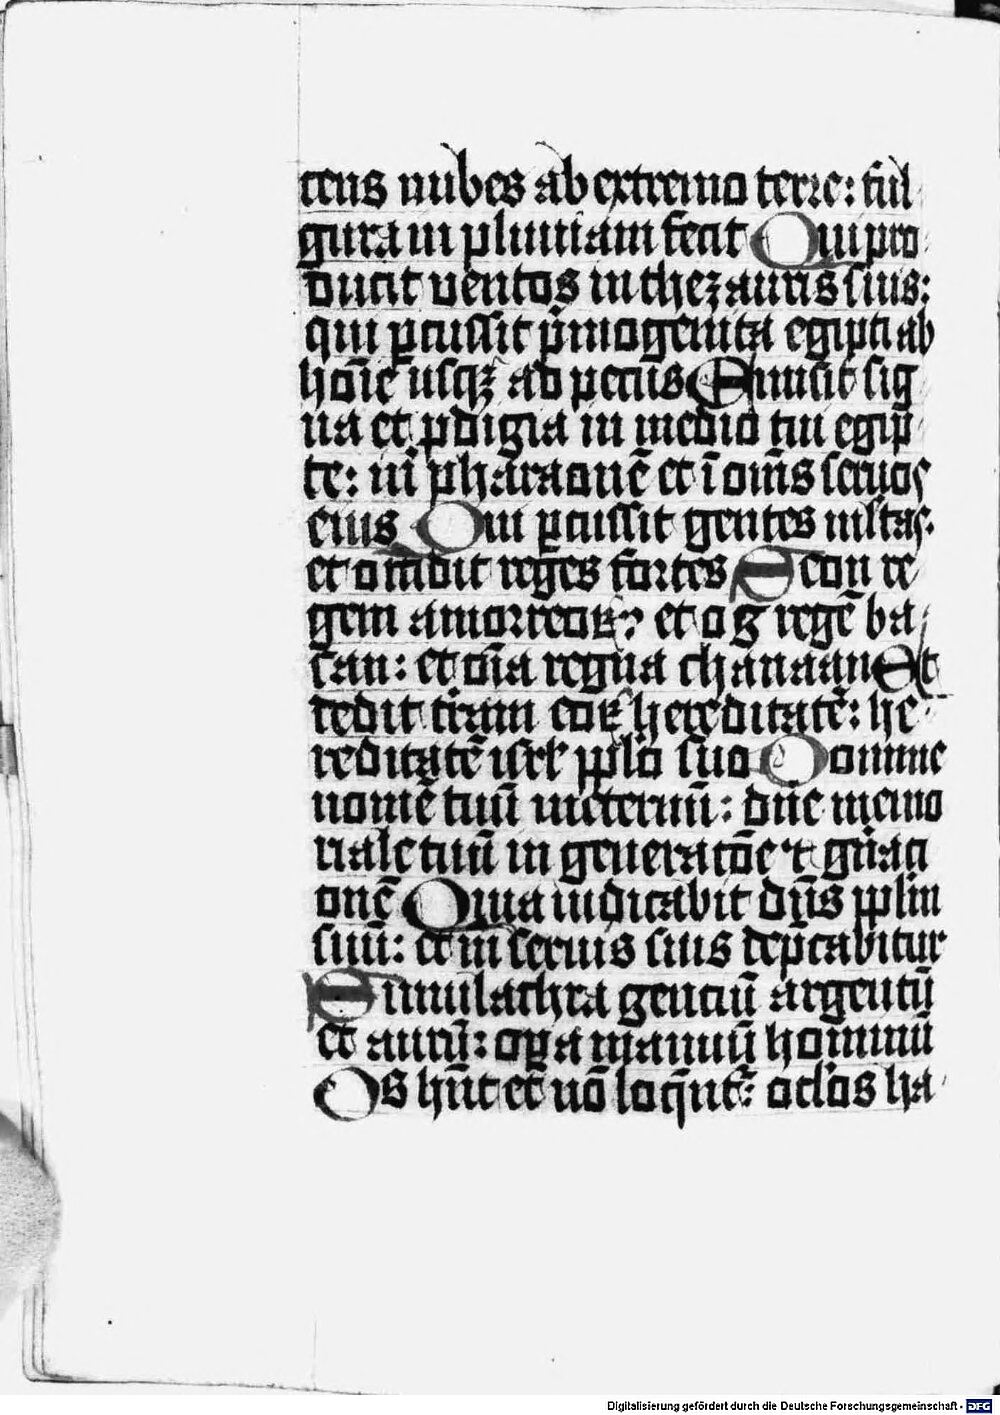 cens nubes ab extremo terre: ful
gura in pluuiam fecit Qui pro
ducit ventos in thezauris suis:
qui ꝑcussit p̄mogenita egipti ab
hoīe usqꝫ ad pecus Emisit sig
na et ꝓdigia in medio tui egip
te: in pharaonē et ī om̄s seruos
eius Qui ꝑcussit gentes m̄ltas:
et occidit reges fortes Seon re
gem amorreoꝝ et og regē ba
san: et om̄ia regna chanaan Et
dedit tr̄am eoꝝ hereditatē: he
reditatē isrl ppl̄o suo Domine
nomē tuū in eternū: dn̄e memo
riale tuū in generatōe ⁊ gn̄aci
onē Quia iudicabit dn̄s ppl̄m
suū: et in seruis suis dep̄cabitur
Simulachra genciū argentū
et aurū: oꝑa manuū hominū
Os hn̄t et nō loqn̄tˀ: oclos ha
Digitalisierung gefördert durch die Deutsche Forschungsgemeinschaft - DFG